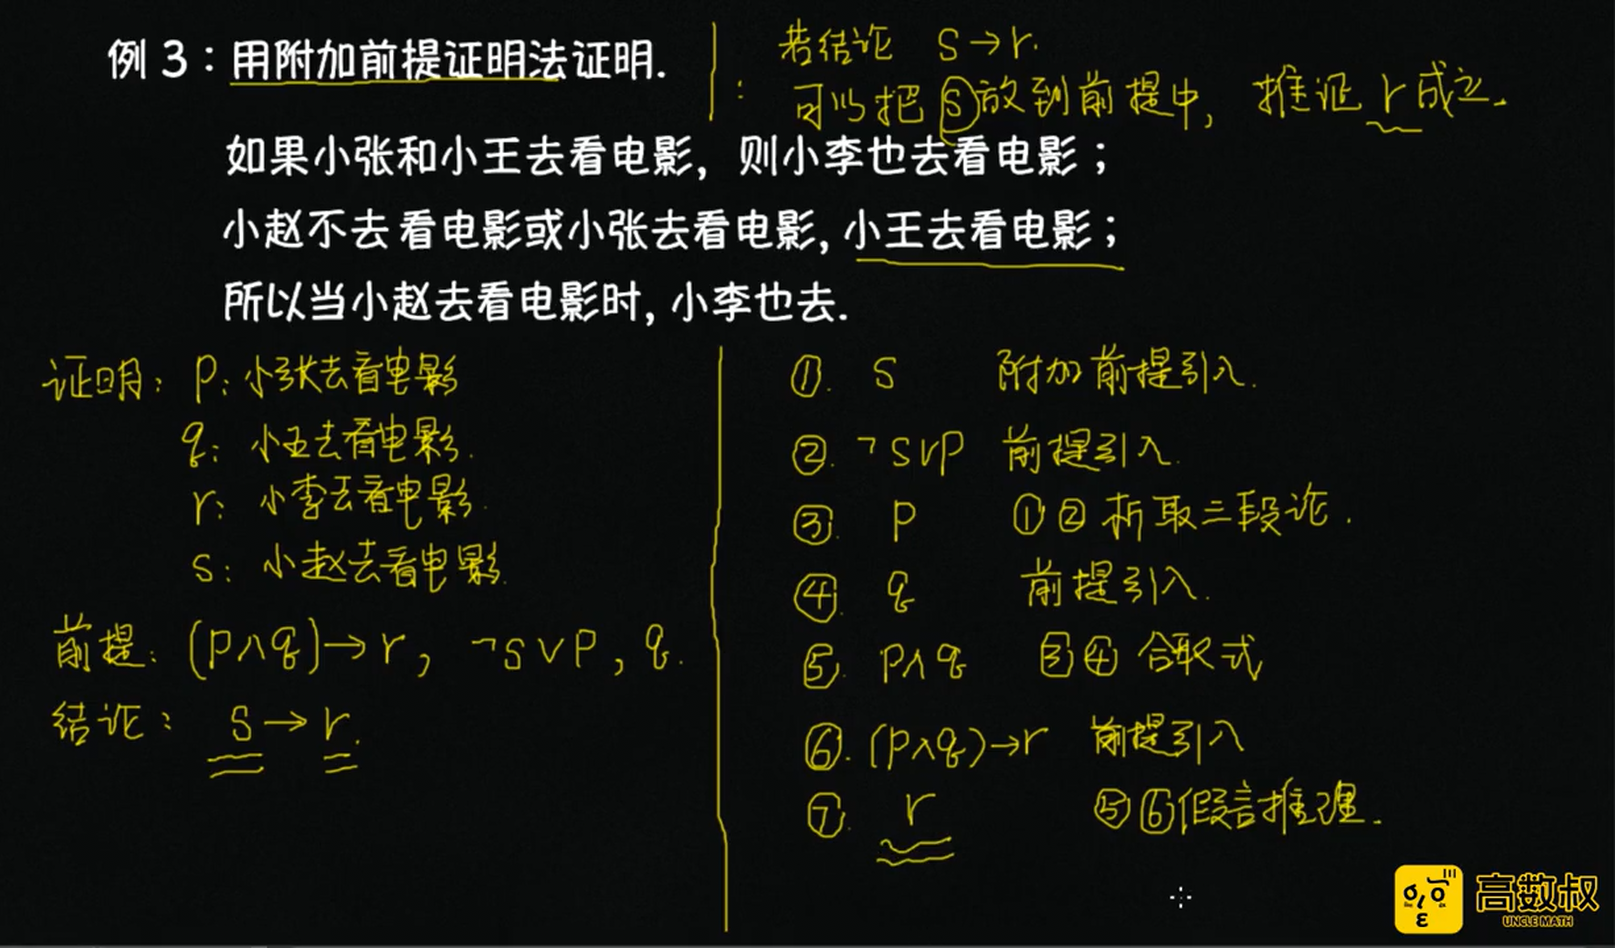 例 3：用附加前提证明法证明.
若结论 S→r.
可以把S放到前提中, 推证 r成立.
如果小张和小王去看电影, 则小李也去看电影；
小赵不去看电影或小张去看电影, 小王去看电影；
所以当小赵去看电影时, 小李也去.
证明: p: 小张去看电影
q: 小王去看电影.
r: 小李去看电影.
s: 小赵去看电影.
前提: (p∧q)→r, ¬s∨p, q.
结论: s→r.
①. s 附加前提引入.
②. ¬s∨p 前提引入.
③. p ①② 析取三段论.
④. q 前提引入.
⑤. p∧q ③④ 合取式
⑥. (p∧q)→r 前提引入
⑦. r ⑤⑥假言推理.
高数叔
UNCLE MATH